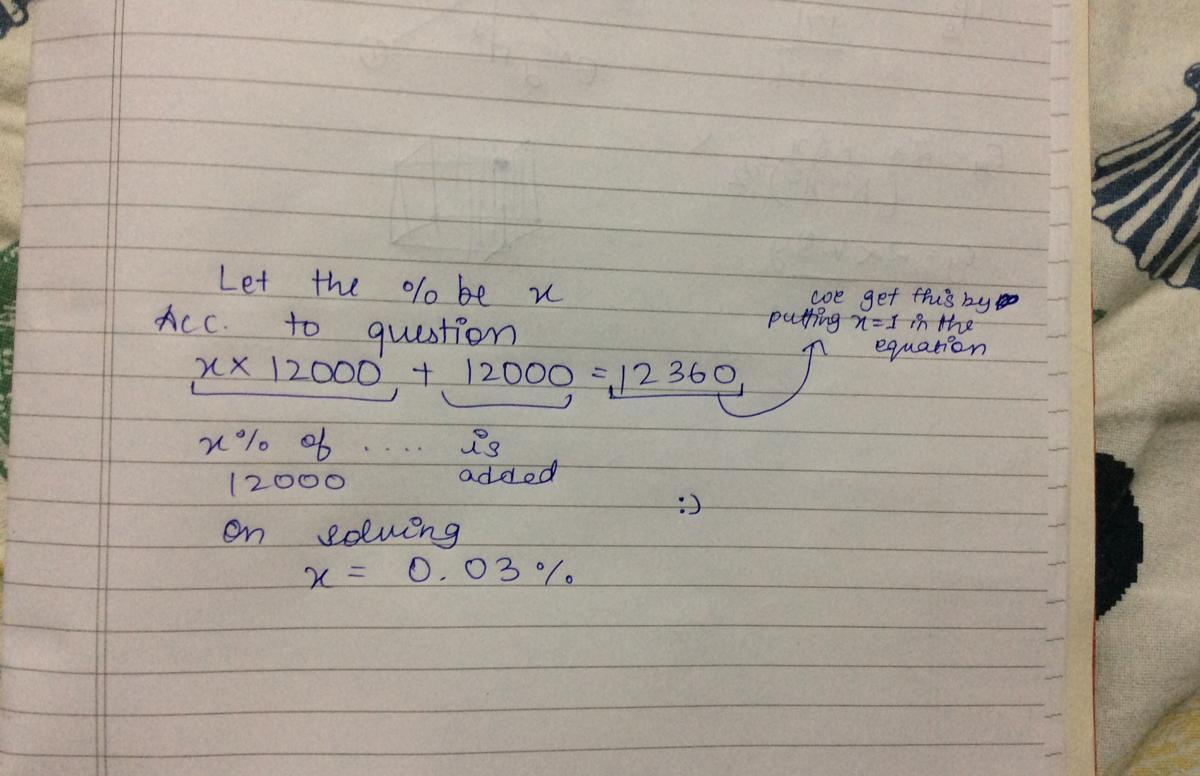 Let the % be x
Acc. to question
x × 12000 + 12000 = 12360
we get this by
putting x=1 in the
equation
x% of .... is
12000 added
:)
On solving
x = 0.03%